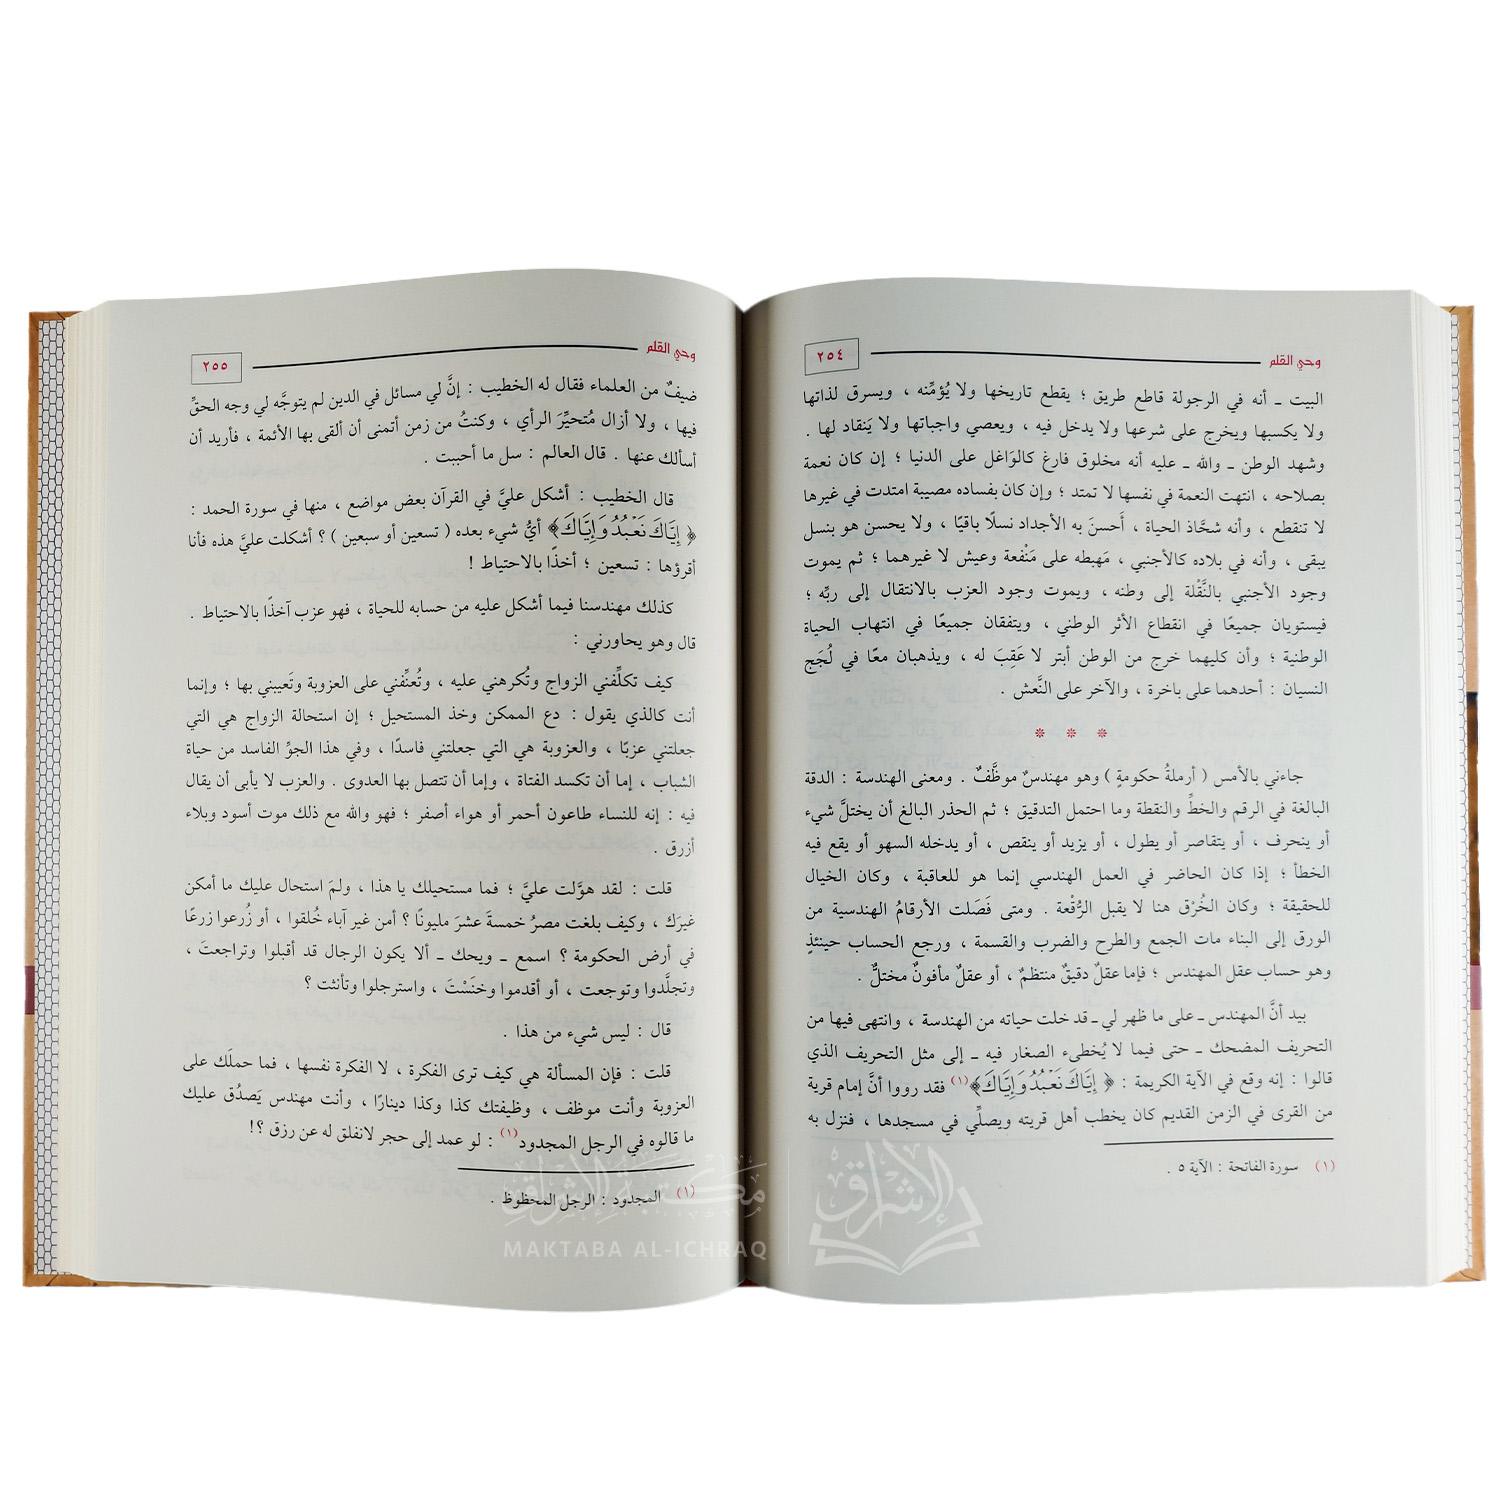 وحي القلم
٢٥٤
البيت ـ أنه في الرجولة قاطع طريق ؛ يقطع تاريخها ولا يُؤمِّنه ، ويسرق لذاتها
ولا يكسبها ويخرج على شرعها ولا يدخل فيه ، ويعصي واجباتها ولا يَنقاد لها .
وشهد الوطن ـ والله ـ عليه أنه مخلوق فارغ كالوَاغل على الدنيا ؛ إن كان نعمة
بصلاحه ، انتهت النعمة في نفسها لا تمتد ؛ وإن كان بفساده مصيبة امتدت في غيرها
لا تنقطع ، وأنه شحَّاذ الحياة ، أَحسنَ به الأجداد نسلًا باقيًا ، ولا يحسن هو بنسل
يبقى ، وأنه في بلاده كالأجنبي ، مَهبطه على مَنْفعة وعيش لا غيرهما ؛ ثم يموت
وجود الأجنبي بالنَّقْلة إلى وطنه ، ويموت وجود العزب بالانتقال إلى ربِّه ؛
فيستويان جميعًا في انقطاع الأثر الوطني ، ويتفقان جميعًا في انتهاب الحياة
الوطنية ؛ وأن كليهما خرج من الوطن أبتر لا عَقِبَ له ، ويذهبان معًا في لُجَج
النسيان : أحدهما على باخرة ، والآخر على النَّعش .
* * *
جاءني بالأمس ( أرملةُ حكومةٍ ) وهو مهندسٌ موظَّفٌ . ومعنى الهندسة : الدقة
البالغة في الرقم والخطِّ والنقطة وما احتمل التدقيق ؛ ثم الحذر البالغ أن يختلَّ شيء
أو ينحرف ، أو يتقاصر أو يطول ، أو يزيد أو ينقص ، أو يدخله السهو أو يقع فيه
الخطأ ؛ إذا كان الحاضر في العمل الهندسي إنما هو للعاقبة ، وكان الخيال
للحقيقة ؛ وكان الخُرْق هنا لا يقبل الرُّقْعة . ومتى فَصَلت الأرقامُ الهندسية من
الورق إلى البناء مات الجمع والطرح والضرب والقسمة ، ورجع الحساب حينئذٍ
وهو حساب عقل المهندس ؛ فإما عقلٌ دقيقٌ منتظمٌ ، أو عقلٌ مأفونٌ مختلٌّ .
بيد أنَّ المهندس ـ على ما ظهر لي ـ قد خلت حياته من الهندسة ، وانتهى فيها من
التحريف المضحك ـ حتى فيما لا يُخطىء الصغار فيه ـ إلى مثل التحريف الذي
قالوا : إنه وقع في الآية الكريمة : ﴿ إِيَّاكَ نَعْبُدُ وَإِيَّاكَ﴾(١) فقد رووا أنَّ إمام قرية
من القرى في الزمن القديم كان يخطب أهل قريته ويصلِّي في مسجدها ، فنزل به
(١) سورة الفاتحة : الآية ٥ .
وحي القلم
٢٥٥
ضيفٌ من العلماء فقال له الخطيب : إنَّ لي مسائل في الدين لم يتوجَّه لي وجه الحقِّ
فيها ، ولا أزال مُتحيِّرَ الرأي ، وكنتُ من زمن أتمنى أن ألقى بها الأئمة ، فأريد أن
أسألك عنها . قال العالم : سل ما أحببت .
قال الخطيب : أشكل عليَّ في القرآن بعض مواضع ، منها في سورة الحمد :
﴿ إِيَّاكَ نَعْبُدُ وَإِيَّاكَ﴾ أيُّ شيء بعده ( تسعين أو سبعين ) ؟ أشكلت عليَّ هذه فأنا
أقرؤها : تسعين ؛ أخذًا بالاحتياط !
كذلك مهندسنا فيما أشكل عليه من حسابه للحياة ، فهو عزب آخذًا بالاحتياط .
قال وهو يحاورني :
كيف تكلِّفني الزواج وتُكرهني عليه ، وتُعنِّفني على العزوبة وتَعيبني بها ؛ وإنما
أنت كالذي يقول : دع الممكن وخذ المستحيل ؛ إن استحالة الزواج هي التي
جعلتني عزبًا ، والعزوبة هي التي جعلتني فاسدًا ، وفي هذا الجوِّ الفاسد من حياة
الشباب ، إما أن تكسد الفتاة ، وإما أن تتصل بها العدوى . والعزب لا يأبى أن يقال
فيه : إنه للنساء طاعون أحمر أو هواء أصفر ؛ فهو والله مع ذلك موت أسود وبلاء
أزرق .
قلت : لقد هوَّلت عليَّ ؛ فما مستحيلك يا هذا ، ولمَ استحال عليك ما أمكن
غيرَك ، وكيف بلغت مصرُ خمسةَ عشرَ مليونًا ؟ أمن غير آباء خُلقوا ، أو زُرعوا زرعًا
في أرض الحكومة ؟ اسمع ـ ويحك ـ ألا يكون الرجال قد أقبلوا وتراجعتَ ،
وتجلَّدوا وتوجعت ، أو أقدموا وخنَسْتَ ، واسترجلوا وتأنثت ؟
قال : ليس شيء من هذا .
قلت : فإن المسألة هي كيف ترى الفكرة ، لا الفكرة نفسها ، فما حملَك على
العزوبة وأنت موظف ، وظيفتك كذا وكذا دينارًا ، وأنت مهندس يَصدُق عليك
ما قالوه في الرجل المجدود(١) : لو عمد إلى حجر لانفلق له عن رزق ؟!
(١) المجدود : الرجل المحظوظ .
مكتبة الإشراق
MAKTABA AL-ICHRAQ
الإشراق